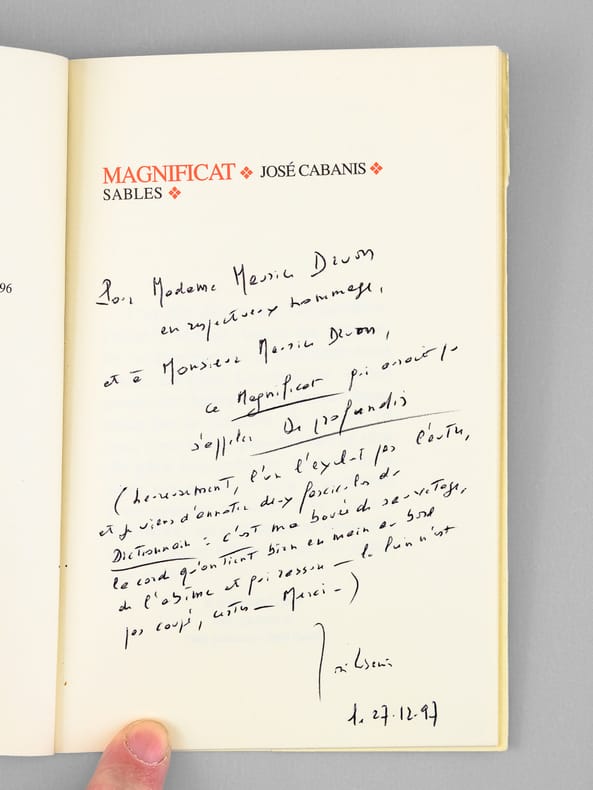 96
MAGNIFICAT ❖ JOSÉ CABANIS ❖
SABLES ❖
Pour Madame Maurice Druon
en respectueux hommage,
et à Monsieur Maurice Druon,
ce Magnificat qui aurait pu
s'appeler De profundis
(heureusement, l'un l'exclut pas l'autre,
et je viens d'annoter deux fascicules du
Dictionnaire : c'est ma bouée de sauvetage,
la corde qu'on tient bien en main au bord
de l'abîme et qui rassure — le lien n'est
pas coupé, certes — Merci —)
José Cabanis
le 27.12.97